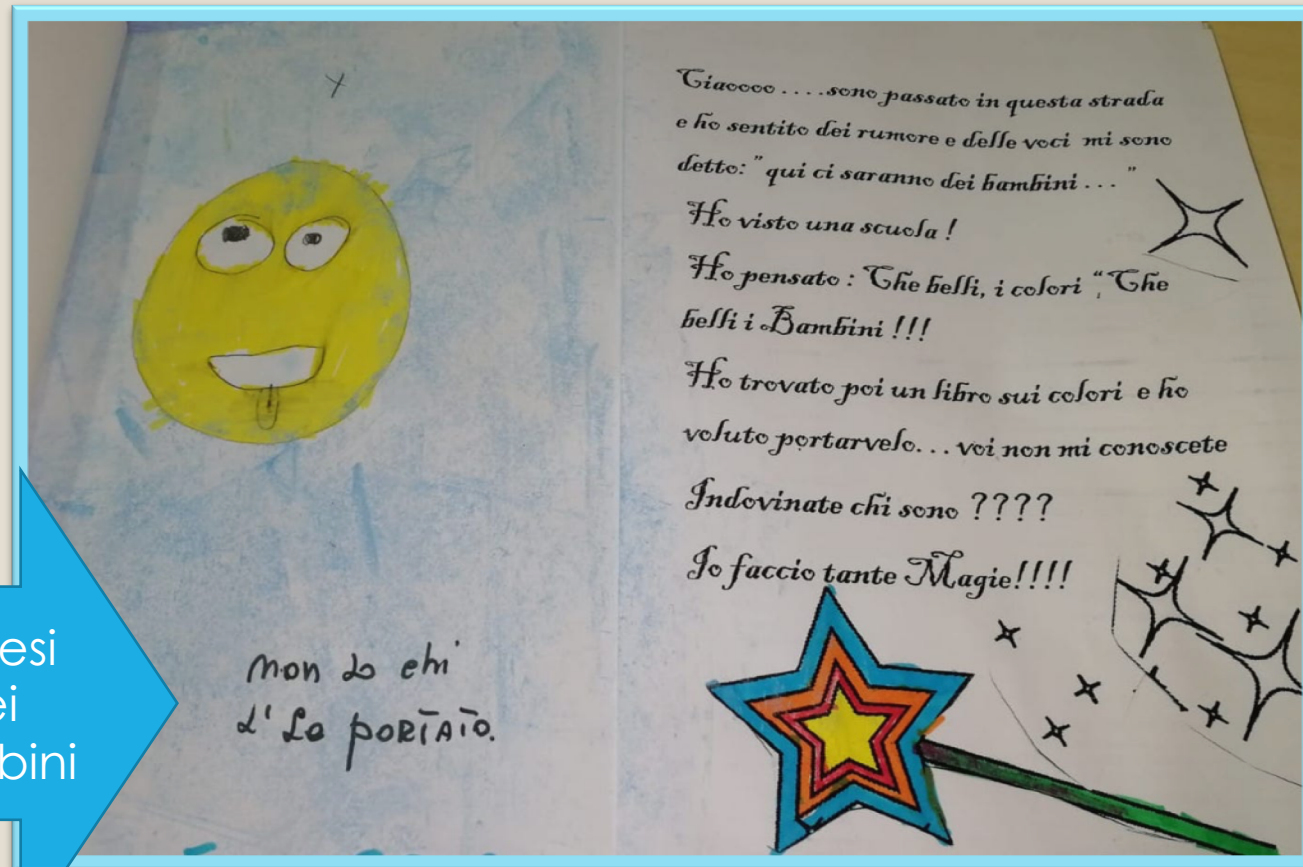 Ciaoooo . . . .sono passato in questa strada
e ho sentito dei rumore e delle voci mi sono
detto: " qui ci saranno dei bambini . . . "
Ho visto una scuola !
Ho pensato : Che belli, i colori “, Che
belli i Bambini !!!
Ho trovato poi un libro sui colori e ho
voluto portarvelo. . . voi non mi conoscete
Indovinate chi sono ????
Io faccio tante Magie!!!!
non so chi
l' ha PORTATO.
esi
ei
bini